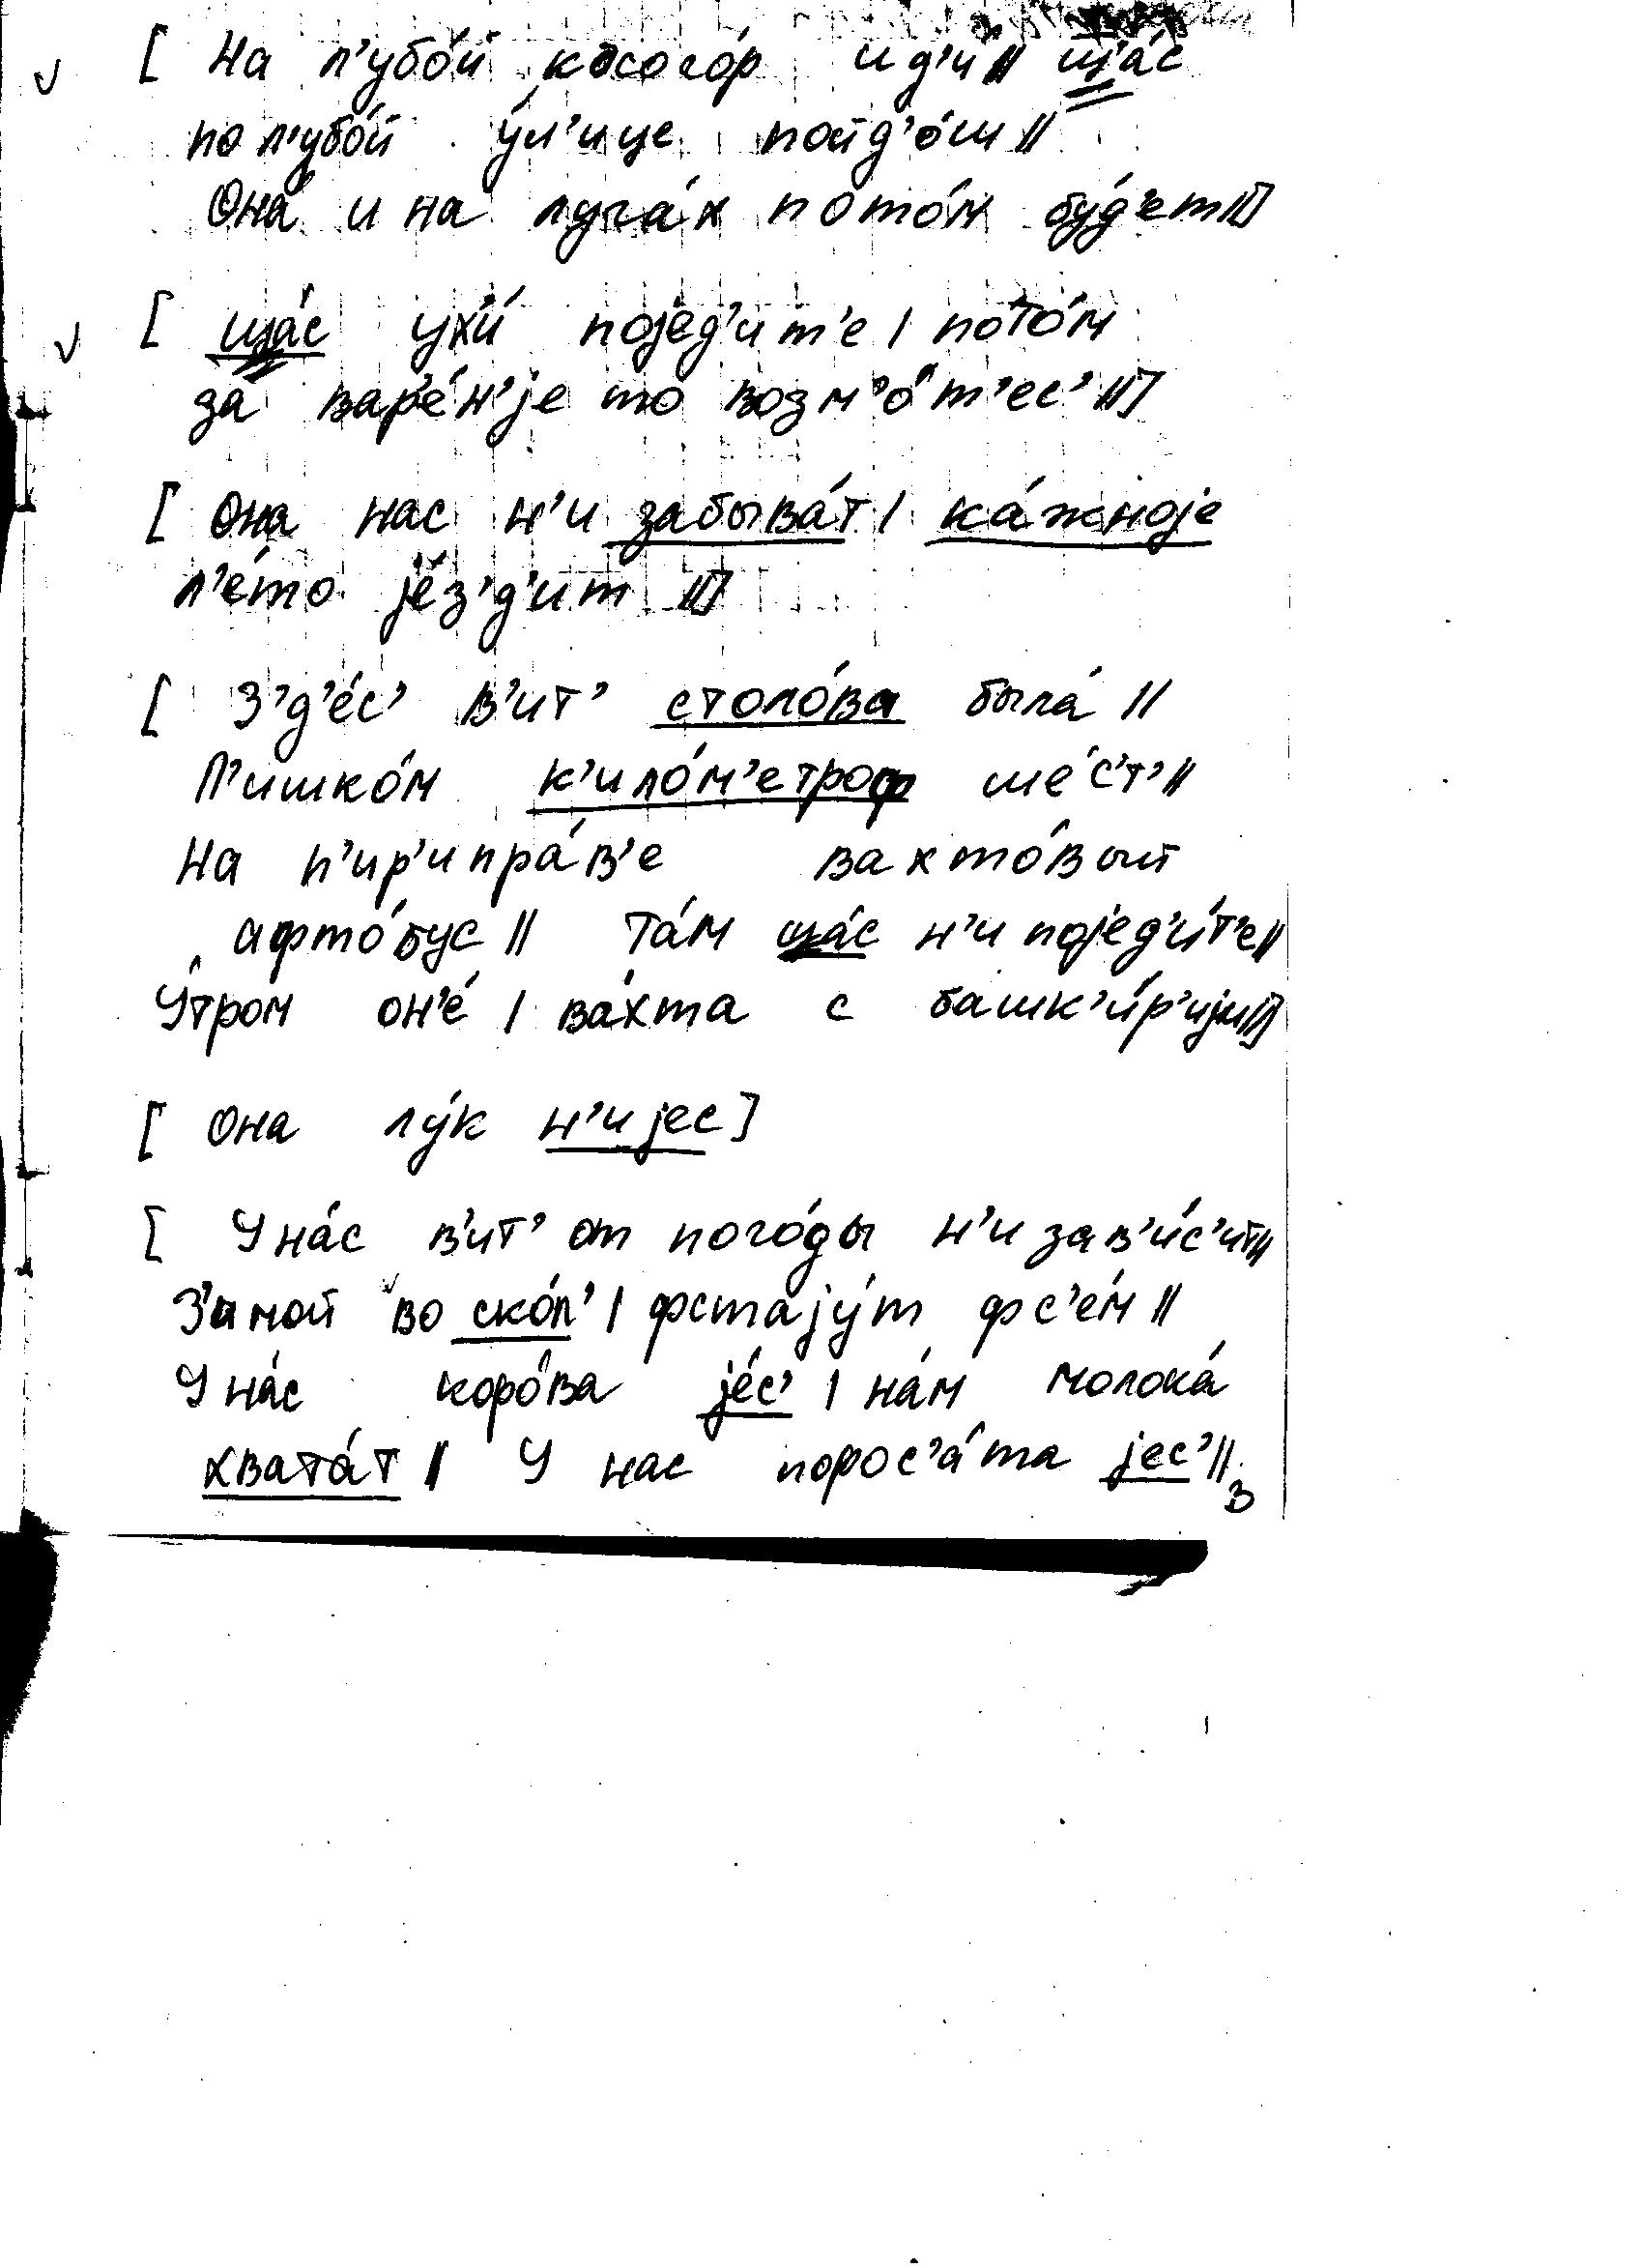 [ На л'убо́й косого́р ид'и́ // ща́с
по л'убо́й у́л'ице пойд'о́ш //
Она́ и на луга́х пото́м бу́д'ет // ]
[ ща́с ухи́ појед'ит'е / пото́м
за вар'е́н'је то возм'о́т'ес' // ]
[ Она нас н'и забыва́т / ка́жноје
л'е́то је́з'д'ит // ]
[ З'д'е́с' в'ит' столо́ва была́ //
П'ишко́м к'ило́м'етроф ше́с'т' //
На п'ир'ипра́в'е вахто́вый
афто́бус // Та́м ща́с н'и појед'и́т'е //
У́тром он'е́ / ва́хта с башк'и́р'ији // ]
[ Она лу́к н'и јес ]
[ У на́с в'ит' от пого́ды н'и зав'и́с'ит //
З'имой во ско́л' / фстају́т фс'е́м //
У на́с коро́ва је́с' / на́м молока́
хвата́т // У нас порос'а́та јес' //